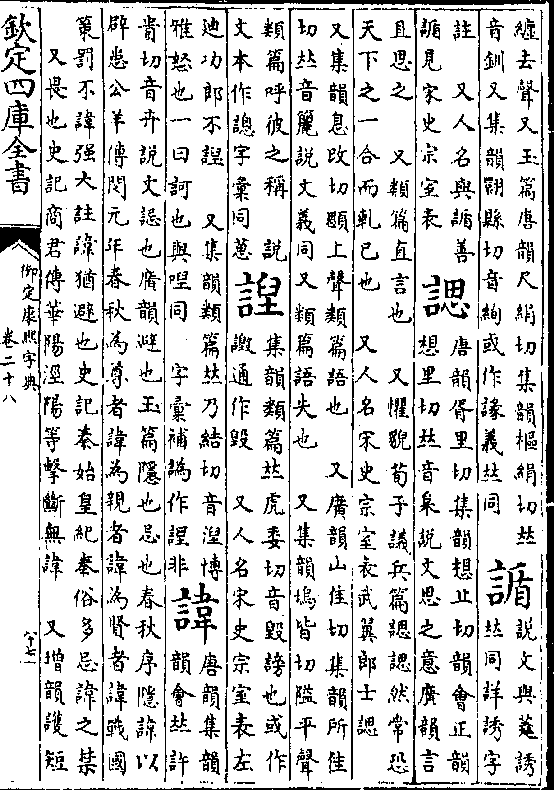 纏去聲又玉篇唐韻尺絹切集韻樞絹切𠀤
音釧又集韻翾縣切音絢或作諑義𠀤同
䛻
說文與羑誘
𠀤同詳誘字
註 又人名與䛻善
䛻見宋史宗室表
諰
唐韻胥里切集韻想止切韻會正韻
想里切𠀤音枲說文思之意廣韻言
且思之 又類篇直言也 又懼貌荀子議兵篇諰諰然常恐
天下之一合而軋已也 又人名宋史宗室表武翼郎士諰
又集韻息改切顋上聲類篇語也 又廣韻山佳切集韻所佳
切𠀤音簁說文義同又類篇語失也 又集韻塢皆切隘平聲
類篇呼彼之稱 說
文本作諰字彙同葸
集韻類篇𠀤虎委切音毀謗也或作
譭通作毀 又人名宋史宗室表左
廸功郎不 又集韻類篇𠀤乃結切音湼博
雅怒也一曰訶也與同 字彙補譌作非
諱
唐韻集韻
韻會𠀤許
貴切音卉說文誋也廣韻避也玉篇隱也忌也春秋序隱諱以
辟患公羊傳閔元年春秋為尊者諱為親者諱為賢者諱戰國
策罰不諱强大註諱猶避也史記秦始皇紀秦俗多忌諱之禁
又畏也史記商君傳華陽涇陽等擊斷無諱 又增韻護短
欽定四庫全書
御定康熙字典
卷二十八